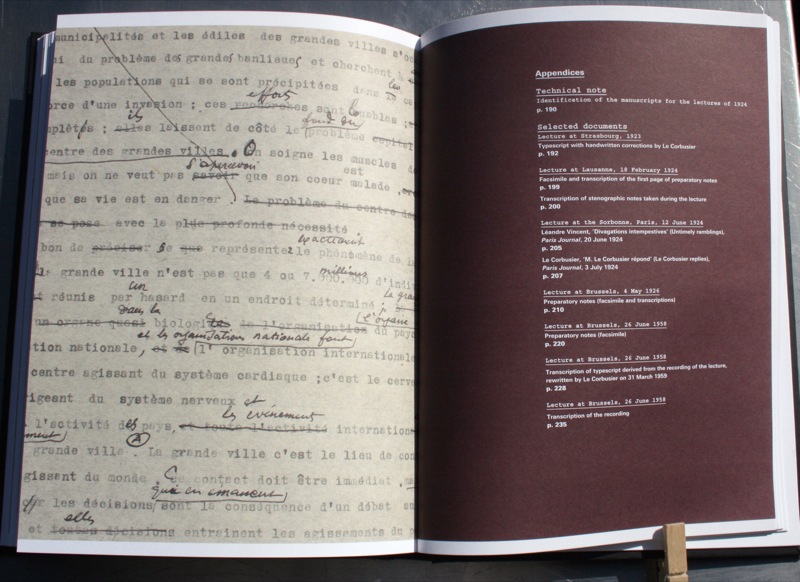 municipalités et les édiles des grandes villes s'oc
du problème des grandes banlieues et cherchent à
les
les populations qui se sont précipitées dans
efforts
orce d'une invasion ; ces recherches sont louables ;
ils fond du
plètes ; elles laissent de côté le problème capital
entre des grandes villes. On soigne les muscles de
s'apercevoir est
mais on ne veut pas savoir que son coeur malade,
que sa vie est en danger. Le problème du centre des
se pose avec la plus profonde nécessité
exactement
bon de préciser que représente le phénomène de
millions
la grande ville n'est pas que 4 ou 7.000.000 d'indiv
un la gra
réunis par hasard en un endroit déterminé :
dans la (l'organe
un organe quasi biologique de l'organisation du pays
et les organisations nationale font
tion nationale, et de l'organisation internationale
centre agissant du système cardiaque ; c'est le cerve
igeant du système nerveux et
les événement
l'activité des pays, et toute l'activité internation
A
grande ville. La grande ville c'est le lieu de con
gissant du monde. Ce contact doit être immédiat,
qui en émanent
les décisions sont la conséquence d'un débat
elles
et toutes décisions entrainent les agissements du p
Appendices
Technical note
Identification of the manuscripts for the lectures of 1924
p. 190
Selected documents
Lecture at Strasbourg, 1923
Typescript with handwritten corrections by Le Corbusier
p. 192
Lecture at Lausanne, 18 February 1924
Facsimile and transcription of the first page of preparatory notes
p. 199
Transcription of stenographic notes taken during the lecture
p. 200
Lecture at the Sorbonne, Paris, 12 June 1924
Léandre Vincent, 'Divagations intempestives' (Untimely ramblings),
Paris Journal, 20 June 1924
p. 205
Le Corbusier, 'M. Le Corbusier répond' (Le Corbusier replies),
Paris Journal, 3 July 1924
p. 207
Lecture at Brussels, 4 May 1926
Preparatory notes (facsimile and transcriptions)
p. 210
Lecture at Brussels, 26 June 1958
Preparatory notes (facsimile)
p. 220
Lecture at Brussels, 26 June 1958
Transcription of typescript derived from the recording of the lecture,
rewritten by Le Corbusier on 31 March 1959
p. 228
Lecture at Brussels, 26 June 1958
Transcription of the recording
p. 235